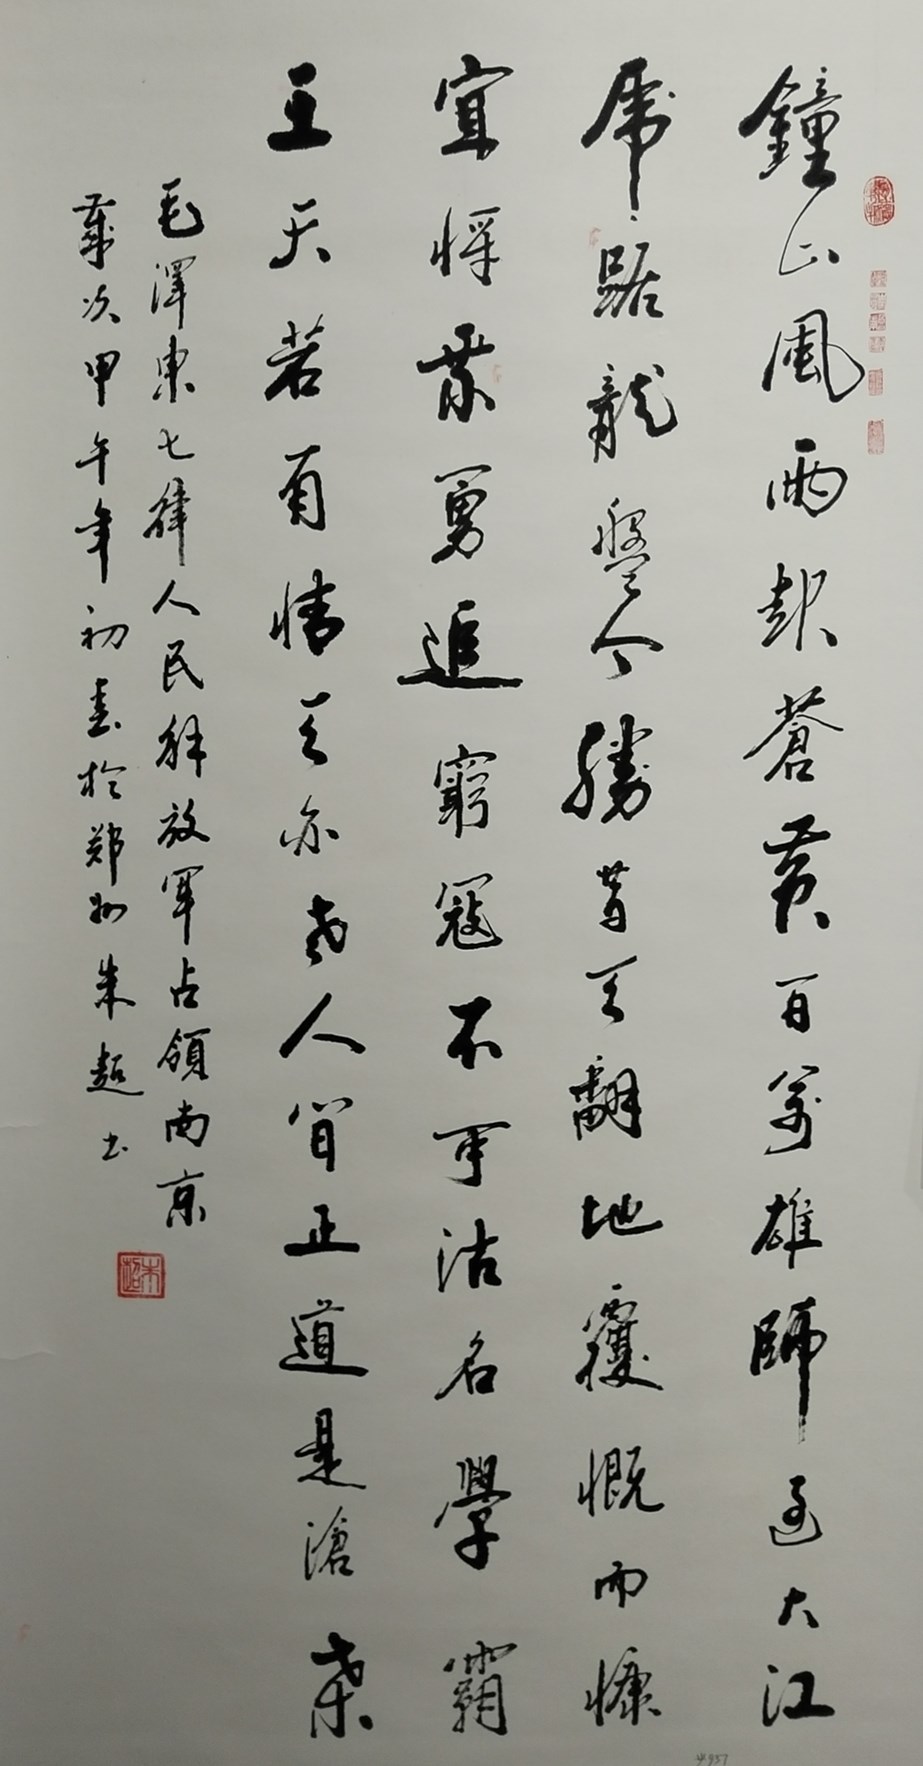 鐘山風雨起蒼黄百萬雄師過大江
虎踞龍盤今勝昔天翻地覆慨而慷
宜將乘勇追窮寇不可沽名學霸
王天若有情天亦老人間正道是滄桑
毛澤東七律人民解放軍占領南京
歲次甲午年初春於郑州朱超书
朱超